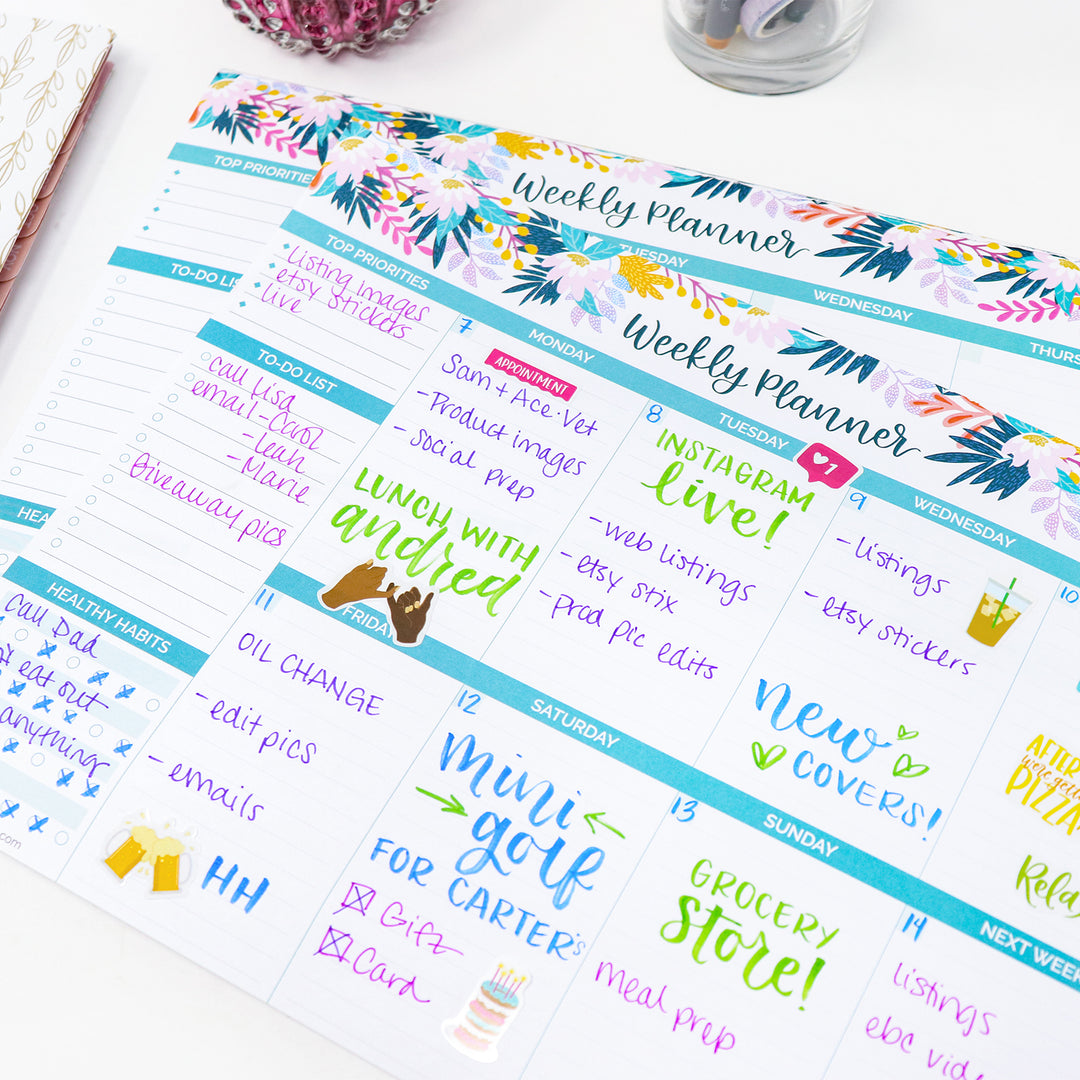 Weekly Planner
TOP PRIORITIES
TUESDAY
WEDNESDAY
THURS
TO-DO LIST
HEA
Weekly Planner
TOP PRIORITIES
Listing images
etsy stickers
live
TO-DO LIST
call Lisa
email - Carol
- Leah
- Marie
Giveaway pics
HEALTHY HABITS
Call Dad
eat out
anything
.com
7
MONDAY
APPOINTMENT
Sam + Ace · Vet
- Product images
- social prep
LUNCH WITH
andrea
8
TUESDAY
1
INSTAGRAM
live!
- web listings
- etsy stix
- prod pic edits
9
WEDNESDAY
- listings
- etsy stickers
New
COVERS!
10
AFTER
we're getting
PIZZA
Relax
11
FRIDAY
OIL CHANGE
- edit pics
- emails
HH
12
SATURDAY
mini
golf
FOR CARTER'S
Gift
Card
13
SUNDAY
GROCERY
Store!
meal prep
14
NEXT WEEK
listings
ebc vide